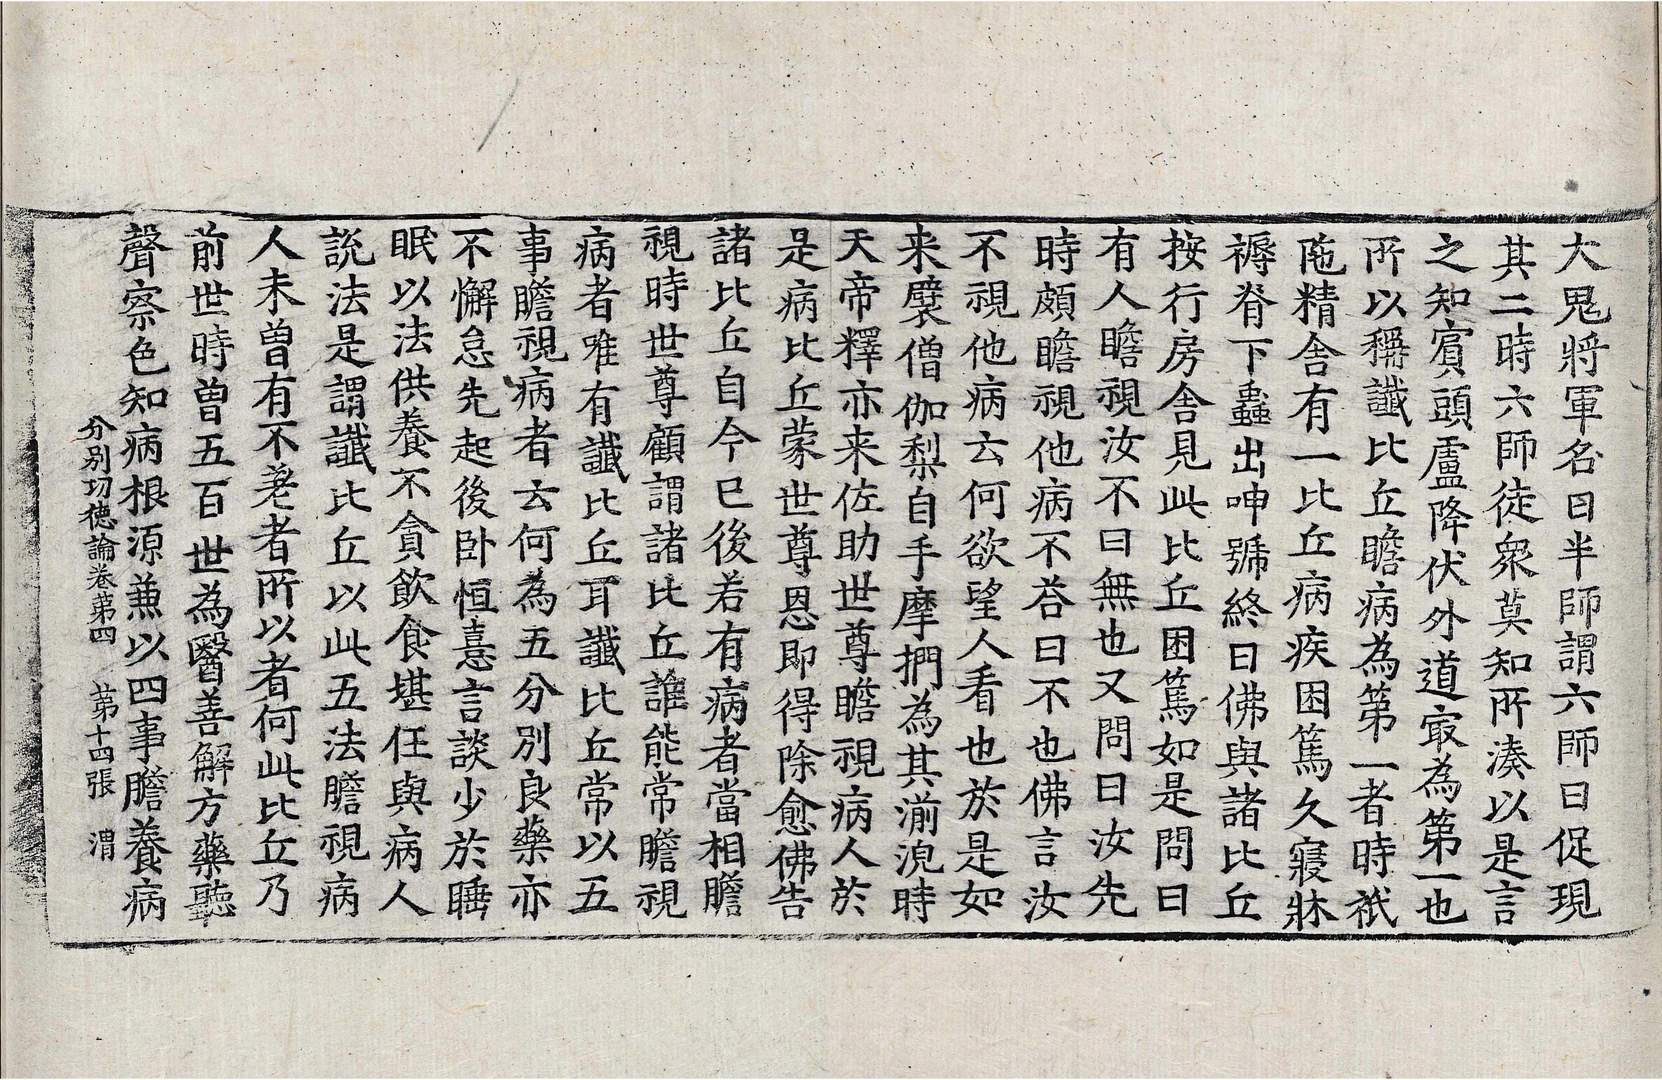 大鬼將軍名曰半師謂六師曰促現
其二時六師徒衆莫知所湊以是言
之知賓頭盧降伏外道㝡為第一也
所以稱讖比丘瞻病為第一者時祇
陁精舍有一比丘病疾困篤久寢牀
褥脊下蟲出呻號終日佛與諸比丘
按行房舍見此比丘困篤如是問曰
有人瞻視汝不曰無也又問曰汝先
時頗瞻視他病不荅曰不也佛言汝
不視他病云何欲望人看也於是如
来襞僧伽梨自手摩捫為其湔浼時
天帝釋亦来佐助世尊瞻視病人於
是病比丘蒙世尊恩即得除愈佛告
諸比丘自今已後若有病者當相瞻
視時世尊顧謂諸比丘誰能常瞻視
病者唯有讖比丘耳讖比丘常以五
事瞻視病者云何為五分別良藥亦
不懈怠先起後卧恒憙言談少於睡
眠以法供養不貪飲食堪任與病人
說法是謂讖比丘以此五法瞻視病
人未曾有不差者所以者何此比丘乃
前世時曾五百世為醫善解方藥聽
聲察色知病根源兼以四事瞻養病
分別功德論卷第四 第十四張 渭